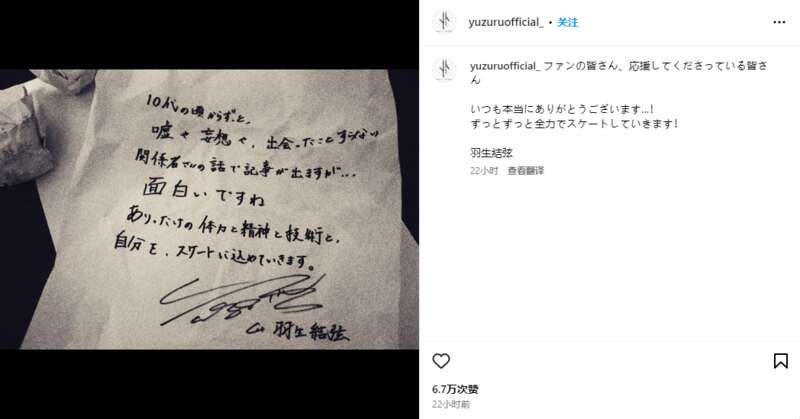 10代の頃からずっと、
嘘や妄想や、出会ったことすらない
関係者さんの話で記事が出ますが…
面白いですね
ありったけの体力と精神と技術と、
自分を、スケートに込めていきます。
羽生結弦
yuzuruofficial_ • 关注
yuzuruofficial_ ファンの皆さん、応援してくださっている皆さ
ん
いつも本当にありがとうございます…!
ずっとずっと全力でスケートしていきます!
羽生結弦
22小时 查看翻译
6.7万次赞
22小时前